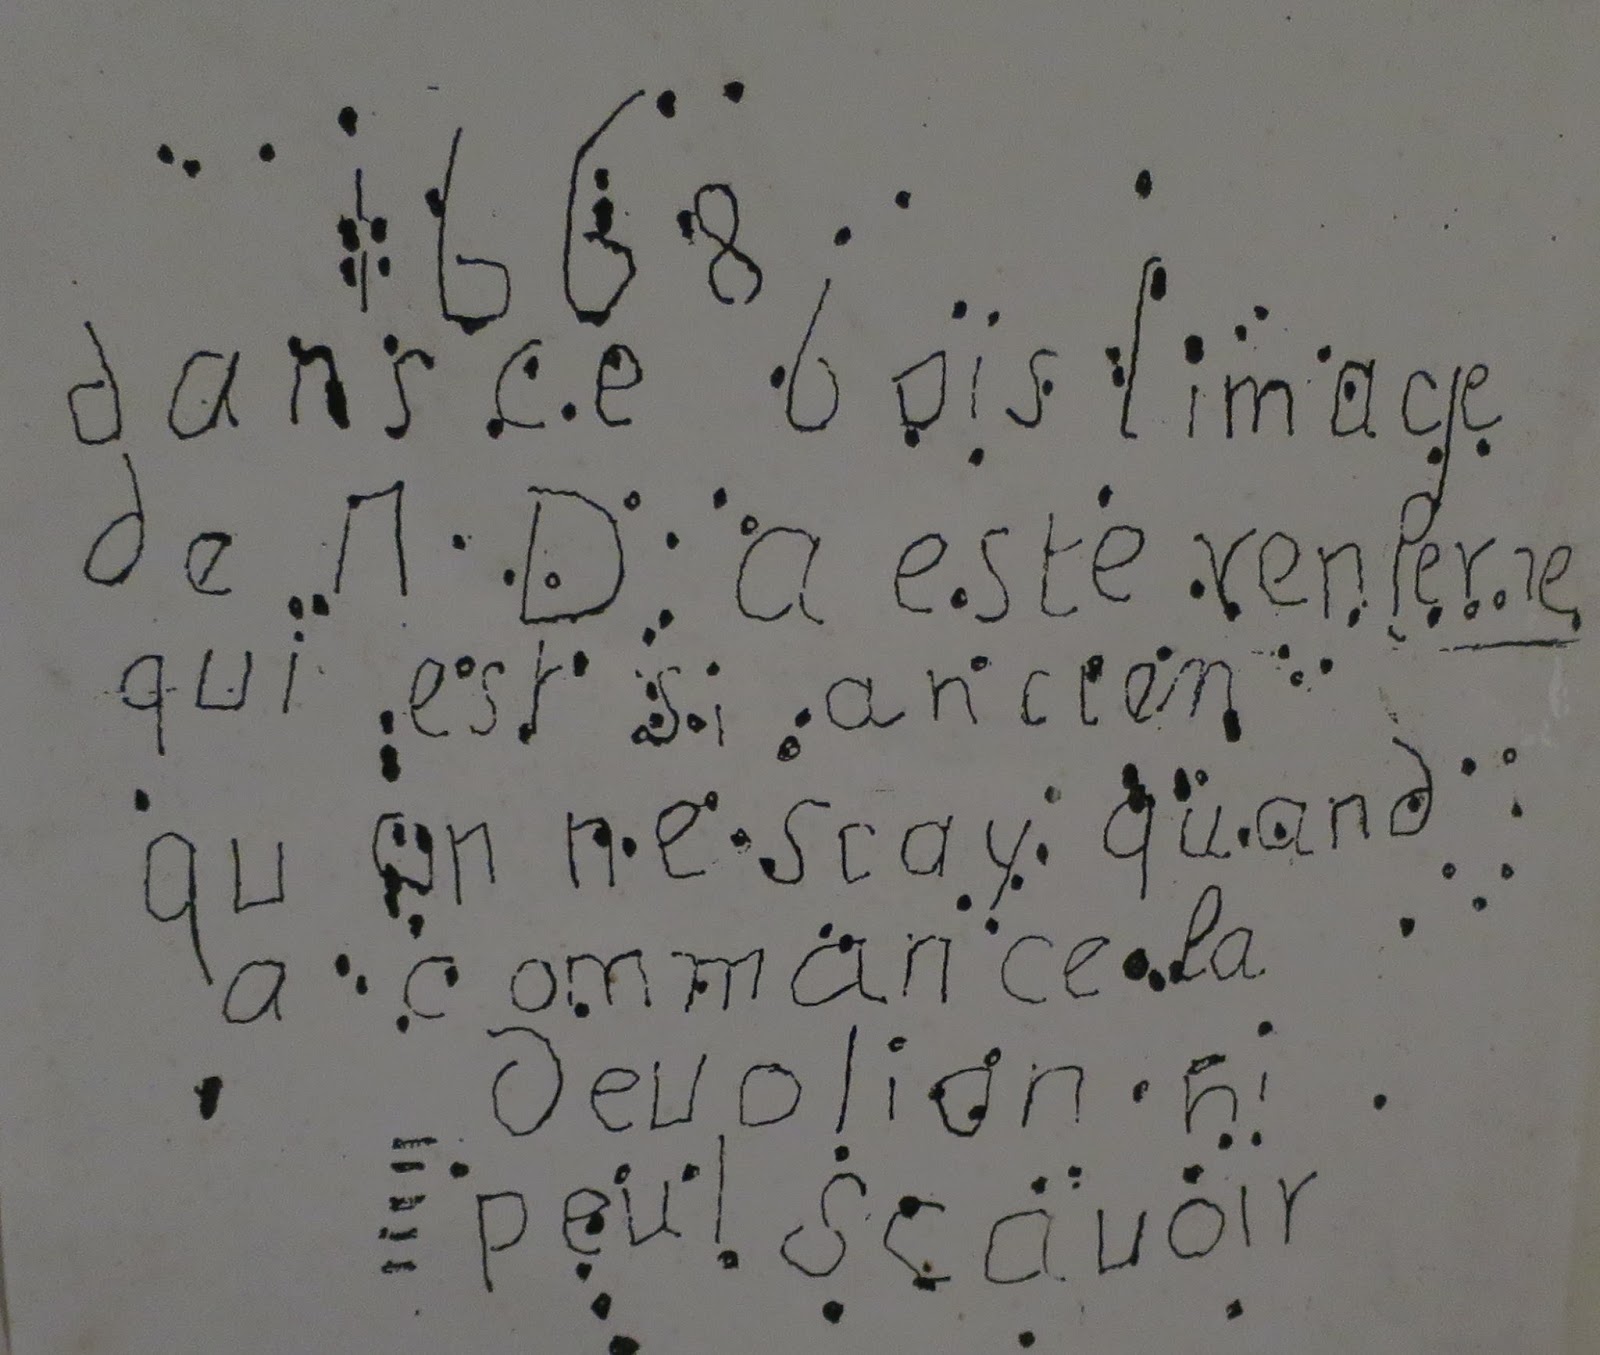 1668
dans ce bois limage
de N. D. a este renferre
qui est si ancien
qu on ne scay quand
a commance la
devotion ni
peut scavoir